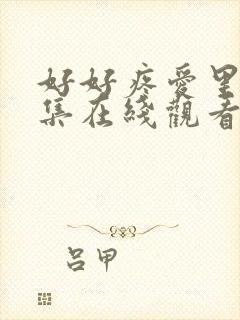 好好疼愛里
集在綫觀看
呂甲